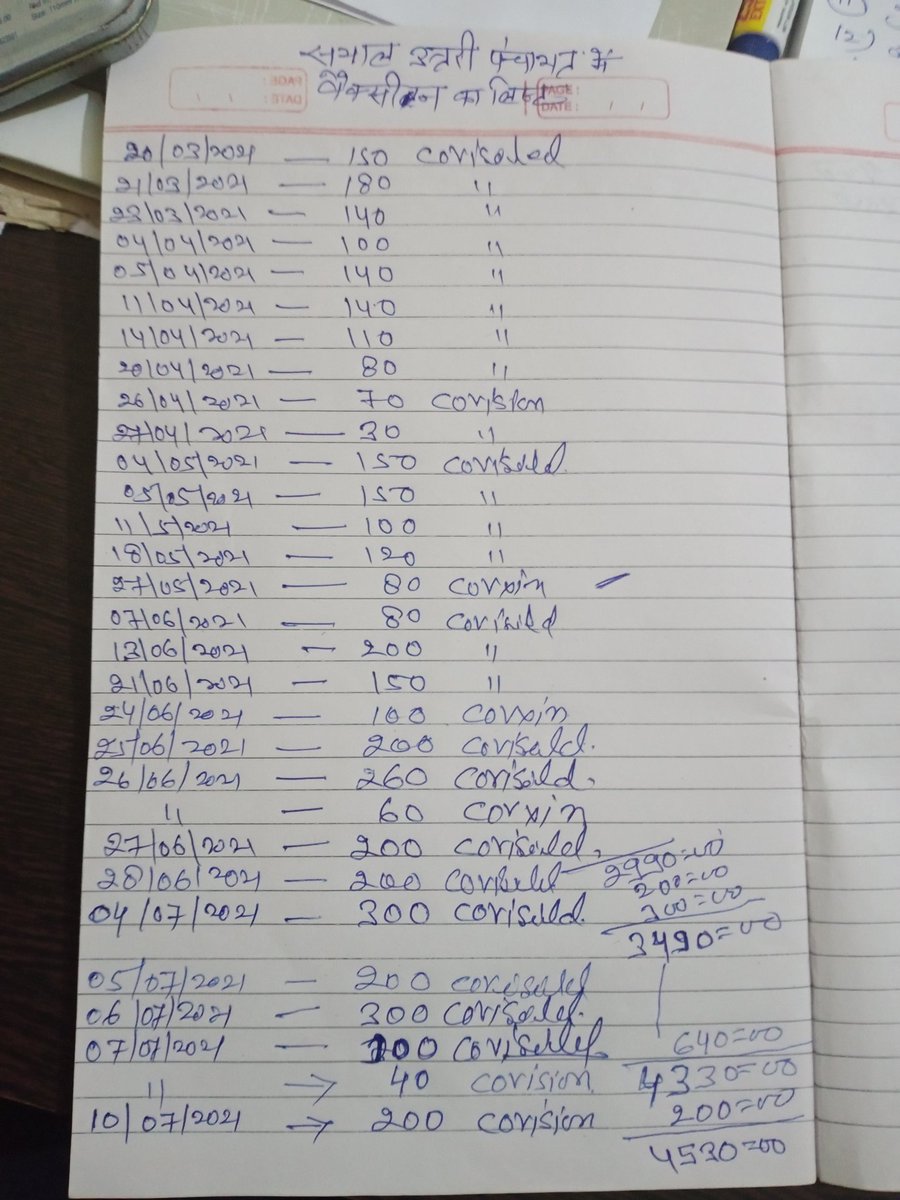 उत्तरी पंचायत में
वैक्सीन का लिस्ट
PAGE :
DATE :
20/03/2021 — 150 covisaled
21/03/2021 — 180 "
23/03/2021 — 140 "
04/04/2021 — 100 "
05/04/2021 — 140 "
11/04/2021 — 140 "
14/04/2021 — 110 "
20/04/2021 — 80 "
26/04/2021 — 70 covision
27/04/2021 — 30 "
04/05/2021 — 150 coviseld.
05/05/2021 — 150 "
11/5/2021 — 100 "
18/05/2021 — 120 "
27/05/2021 — 80 corxin
07/06/2021 — 80 coviseld
13/06/2021 — 200 "
21/06/2021 — 150 "
24/06/2021 — 100 corxin
25/06/2021 — 200 coviseld.
26/06/2021 — 260 coviseld.
" — 60 corxin
27/06/2021 — 200 coviseld, 2990=00
28/06/2021 — 200 coviseld 200=00
04/07/2021 — 300 coviseld. 300=00
3490=00
05/07/2021 — 200 coviseld
06/07/2021 — 300 coviseld.
07/07/2021 — 100 coviseld, 640=00
" → 40 covision 4330=00
10/07/2021 → 200 covision 200=00
4530=00